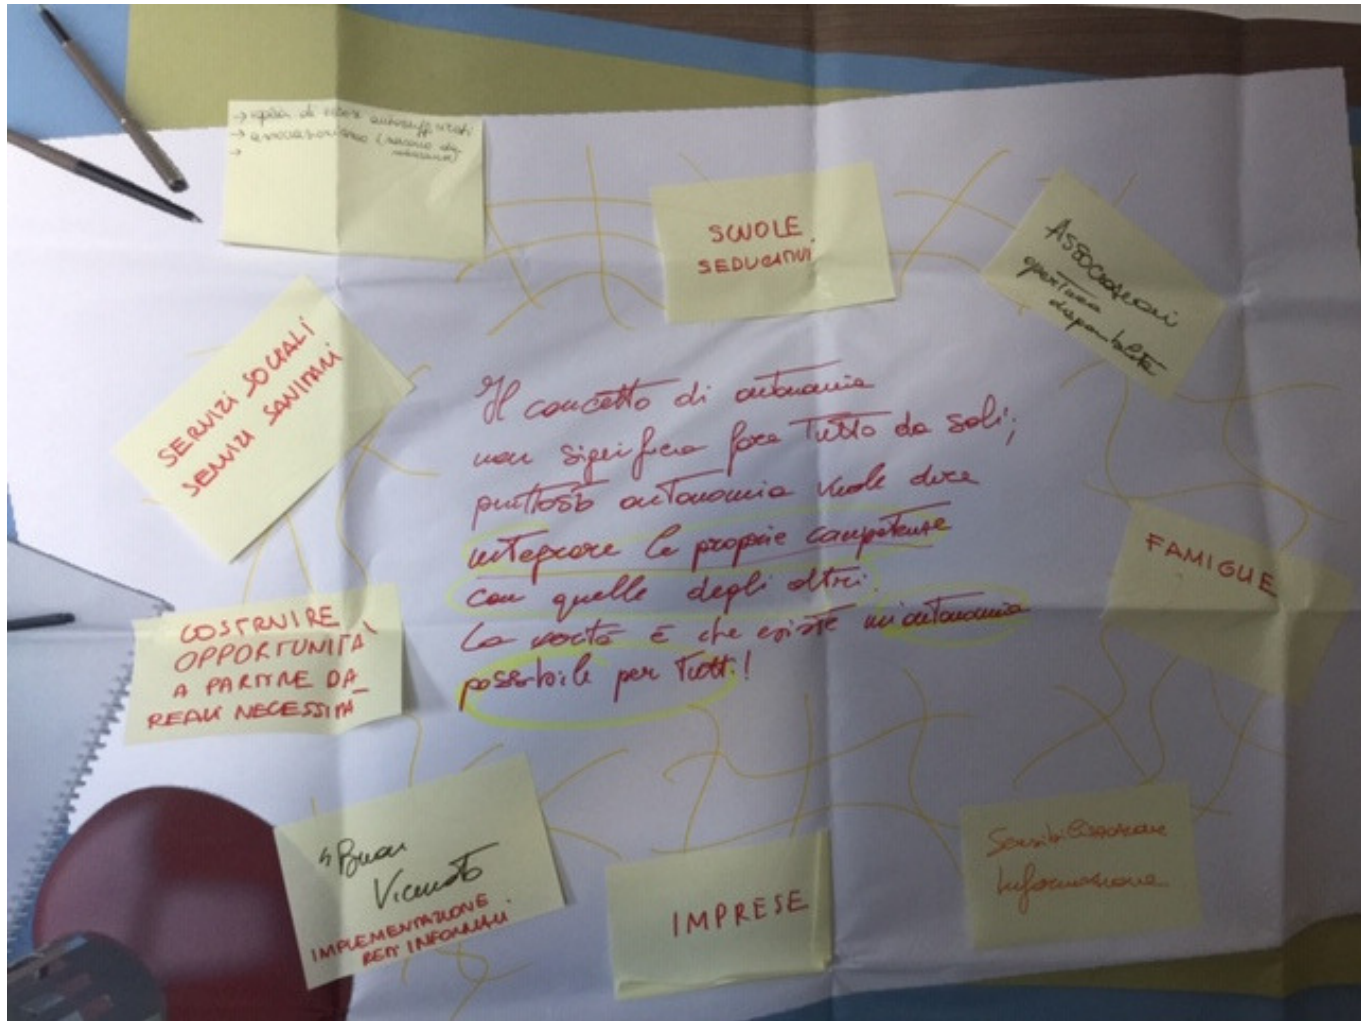 → di autosufficienti
→ associazionismo (
→
SCUOLE
S EDUCATIVI
ASSOCIAZIONI
apertura
disponibilità
SERVIZI SOCIALI
SERVIZI SANITARI
Il concetto di autonomia
non significa fare tutto da soli;
piuttosto autonomia vuole dire
integrare le proprie competenze
con quelle degli altri.
La verità è che esiste un'autonomia
possibile per tutti!
FAMIGLIE
COSTRUIRE
OPPORTUNITÀ
A PARTIRE DA
REALI NECESSITÀ
Buon
Vicinato
IMPLEMENTAZIONE
RETI INFORMALI
IMPRESE
Sensibilizzazione
Informazione